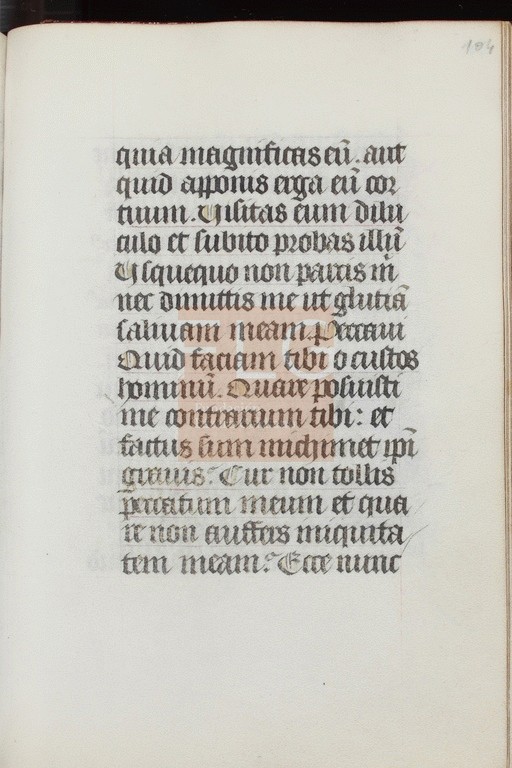 104
quia magnificas eū. aut
quid apponis erga eū cor
tuum. Uisitas eum dilu
culo et subito probas illū
Usquequo non parcis m̄
nec dimittis me ut glutiā
saliuam meam. Peccaui
Quid faciam tibi o custos
hominū. Quare posuisti
me contrarium tibi: et
factus sum michimet ip̄i
grauis? Cur non tollis
peccatum meum et qua
re non auffers iniquita
tem meam? Ecce nunc